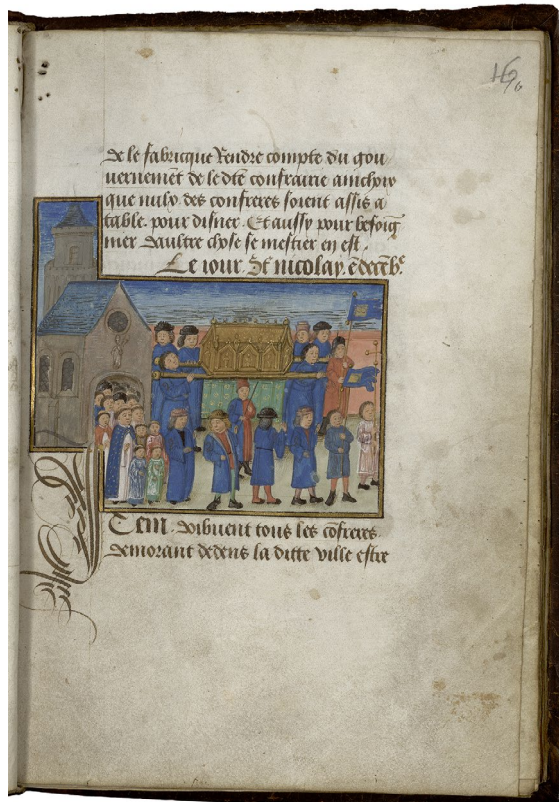 16
de le fabricque Rendre compte du gou
uernemēt de le dte confrairie ainchoiz
que nulz des confreres soient assis a
table. pour disner. Et aussy pour besoig
nier daultre chose se mestier en est.
Le iour St nicolay. e decēbe
Item. doibuent tous les cōfreres
demorant dedens la ditte ville estre